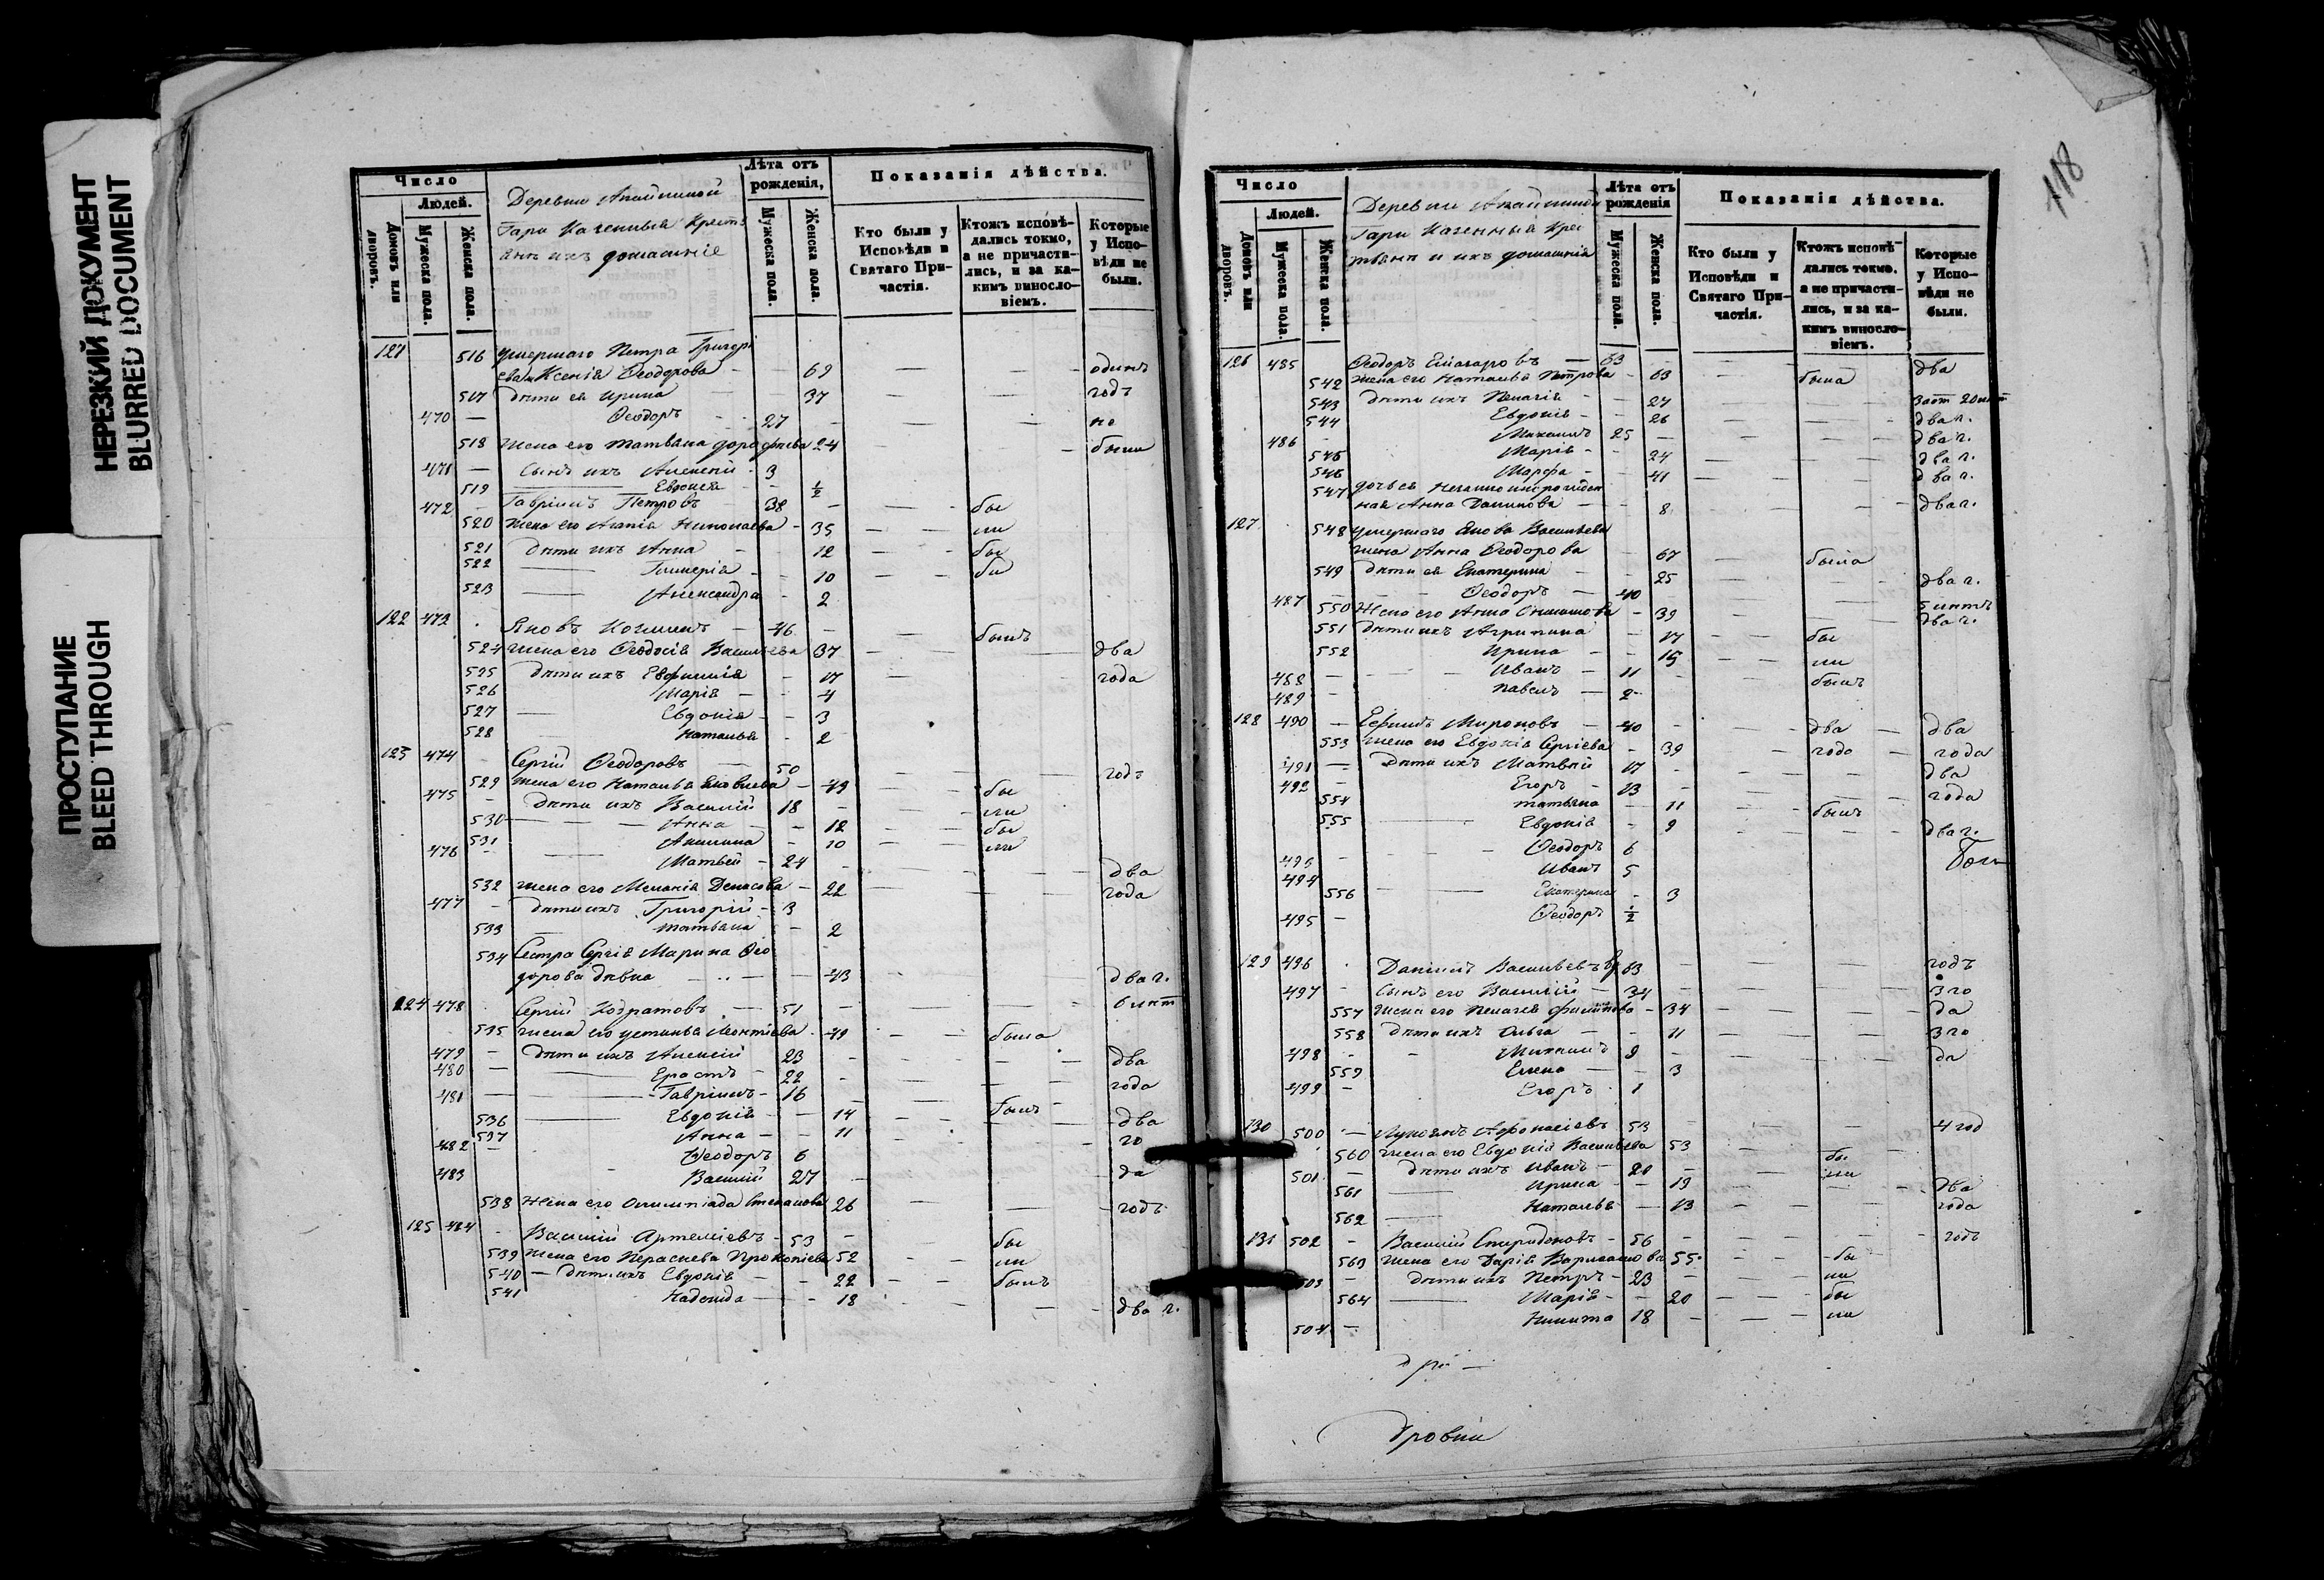 НЕРЕЗКИЙ ДОКУМЕНТ
BLURRED DOCUMENT
ПРОСТУПАНИЕ
BLEED THROUGH
118
Число
Людей.
Домовъ или дворовъ.
Мужеска пола.
Женска пола.
Деревни
Гари Казенныя Кресть
яне ихъ домашніе
Лѣта отъ рожденія,
Мужеска пола.
Женска пола.
Показанія дѣйства.
Кто были у Исповѣди и Святаго Причастія.
Ктожъ исповѣдались токмо, а не причастились, и за какимъ винословіемъ.
Которые у Исповѣди не были.
121 516 умершаго Петра Григорь
ева Ксенія Ѳеодорова 69 одинъ
517 дѣти ея Ирина 37 годъ
470 Ѳеодоръ 27 не
518 жена его Татьяна Дорофѣева 24 были
471 Сынъ ихъ Алексѣй 3
519 Евдокія ½
472 Гавріилъ Петровъ 38 бы
520 жена его Агапія Николаева 35 ли
521 дѣти ихъ Анна 12 бы
522 Гликерія 10
523 Александра 2
122 473 Яковъ 46 былъ
524 жена его Ѳеодосія Васильева 37 два
525 дѣти ихъ Евфимія 17 года
526 Марія 4
527 Евдокія 3
528 Наталья 2
123 474 Сергій Ѳеодоровъ 50 годъ
529 жена его Наталья Яковлева 49 бы
475 дѣти ихъ Василій 18 ли
530 Анна 12 бы
531 Акилина 10 ли
476 Матвей 24 два
532 жена его Меланія Денисова 22 года
477 дѣти ихъ Григорій 3
533 Татьяна 2
534 Сестра Сергія Марина Ѳео
дорова дѣвка 43 два г.
124 478 Сергій Кодратовъ 51 6 лѣт
535 жена его Устинья Леонтіева 49 была
479 дѣти ихъ Алексій 23 два
480 Ерастъ 22 года
481 Гавріилъ 16 былъ
536 Евдокія 14 два
537 Анна 11 го
482 Ѳеодоръ 6
483 Василій 27 да
538 Жена его Олимпіада Степанова 26 годъ
125 484 Василій Артеміевъ 53 бы
539 жена его Параскева Прокопіева 52 ли
540 дѣти ихъ Евдокія 22 былъ
541 Надежда 18 два г.
Число
Людей.
Домовъ или дворовъ.
Мужеска пола.
Женска пола.
Деревни
Гари Казенныя Кре
стьяне и ихъ домашнія
Лѣта отъ рожденія
Мужеска пола.
Женска пола.
Показанія дѣйства.
Кто были у Исповѣди и Святаго Причастія.
Ктожъ исповѣдались токмо, а не причастились, и за какимъ винословіемъ.
Которые у Исповѣди не были.
126 485 Ѳеодоръ Елиазаровъ 63 два
542 жена его Наталья Петрова 63 была
543 дѣти ихъ Пелагія 27
544 Евдокія 26 два г.
486 Михаилъ 25 два г.
545 Марія 24 два г.
546 Марѳа 41 два г.
547 дочь ея незаконнорожден
ная Анна Данилова 8 два г.
127 548 умершаго Якова Васильева
жена Анна Ѳеодорова 67 была
549 дѣти ея Екатерина 25 два г.
487 Ѳеодоръ 40 5 лѣтъ
550 Жена его Анна 39 два г.
551 дѣти ихъ Агрипина 17 бы
552 Ирина 15 ли
488 Иванъ 11 былъ
489 Павелъ 2
128 490 Ефимъ Мироновъ 40 два два
553 жена его Евдокія Сергіева 39 года года
491 дѣти ихъ Матвѣй 17 два
492 Егоръ 13 года
554 Татьяна 11 былъ
555 Евдокія 9 два г.
493 Ѳеодоръ 6
494 Иванъ 5
556 Екатерина 3
495 Ѳеодоръ ½
129 496 Даніилъ Васильевъ 63 годъ
497 Сынъ его Василій 34 3 го
557 жена его Пелагея Филипова 34 да
558 дѣти ихъ Ольга 11 3 го
498 Михаилъ 9 да
559 Елена 3
499 Егоръ 1
130 500 Лукіанъ Афонасіевъ 53 4 год
560 жена его Евдокія Васильева 53 бы
501 дѣти ихъ Иванъ 20 ли
561 Ирина 19 два
562 Наталья 13 года
131 502 Василій Спиридоновъ 56 годъ
563 жена его Дарія Варлаамова 55 бы
503 дѣти ихъ Петръ 23 ли
564 Марія 20 бы
504 Никита 18 ли